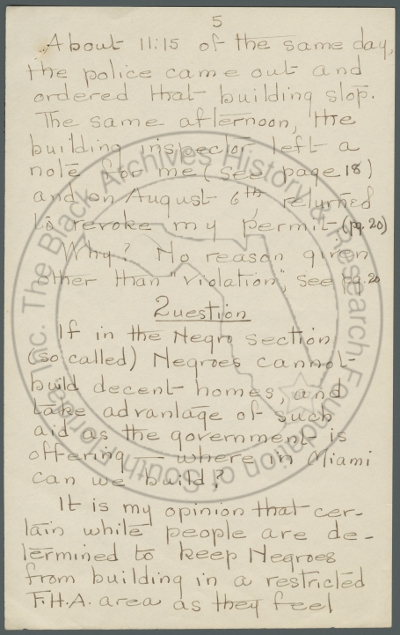 5
About 11:15 of the same day,
the police came out and
ordered that building stop.
The same afternoon, the
building inspector left a
note for me (see page 18)
and on August 6th, returned
to revoke my permit (pg. 20)
Why? No reason given
other than "violation", see pg. 20
Question
If in the Negro section
(so called) Negroes cannot
build decent homes, and
take advantage of such
aid as the government is
offering — where in Miami
can we build?
It is my opinion that cer-
tain white people are de-
termined to keep Negroes
from building in a restricted
F.H.A. area as they feel
The Black Archives History & Research Foundation of South Florida Inc.